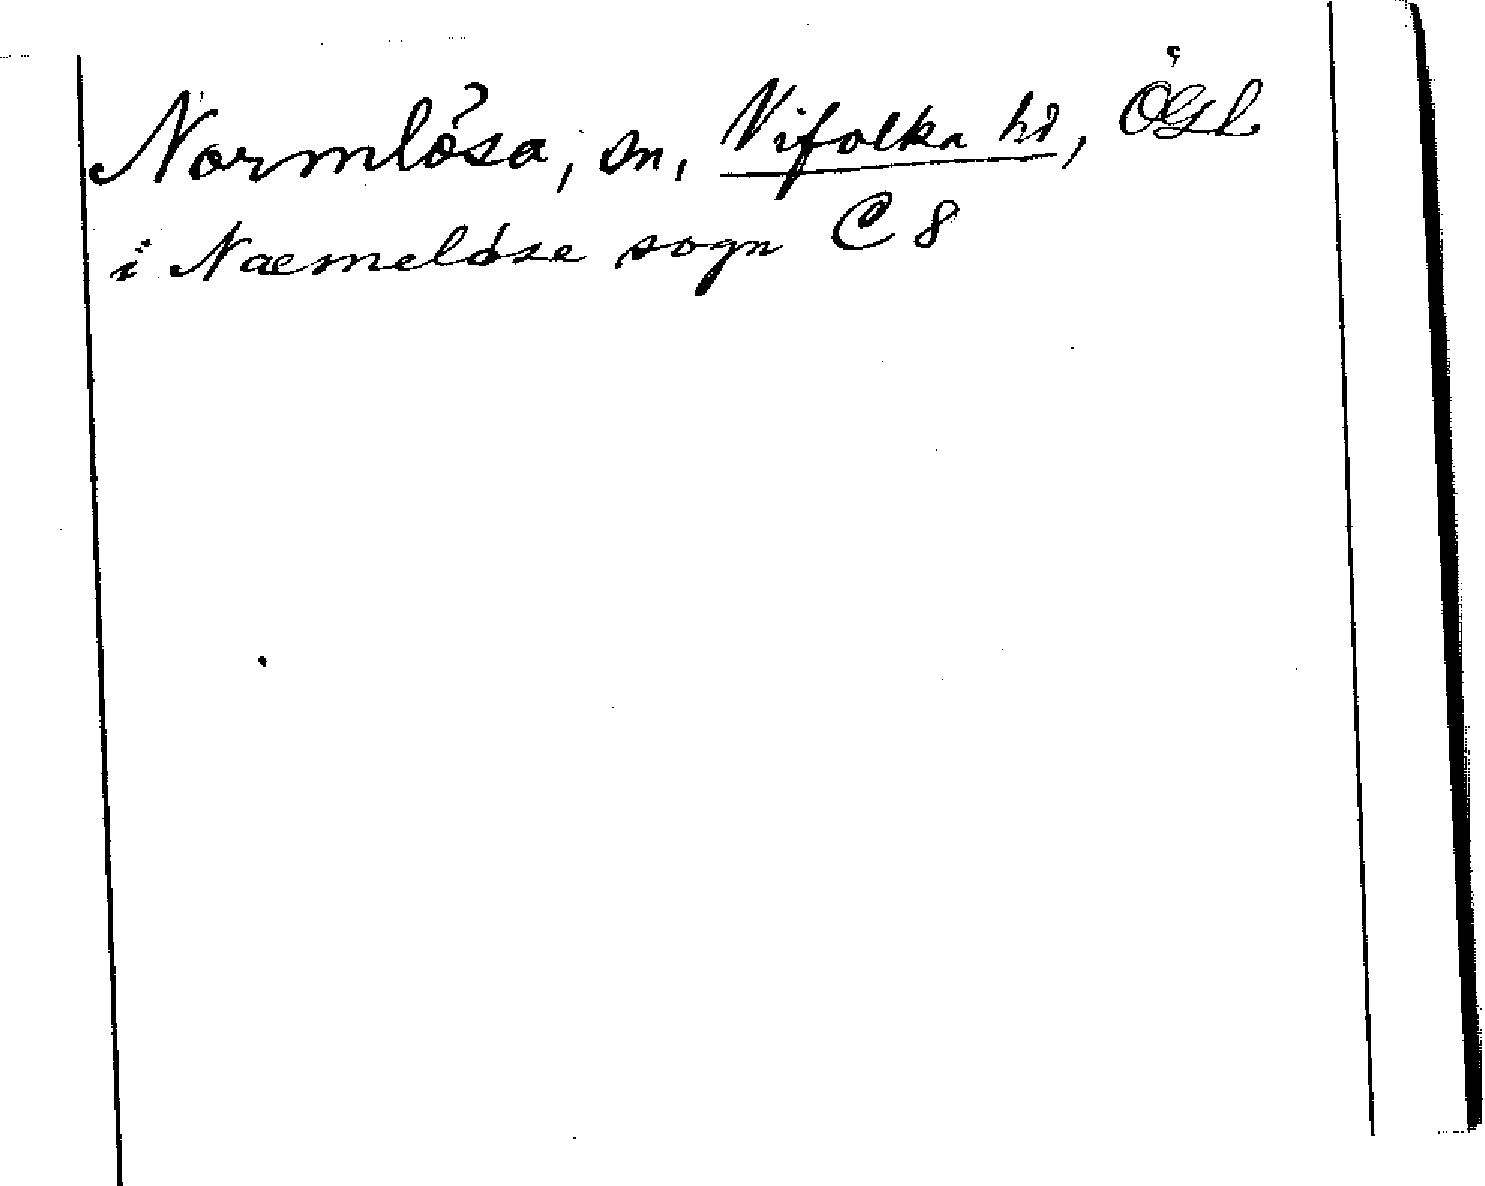 Normlösa, sn, Vifolka hd, ÖGL
i Næmeløse sogn C 8